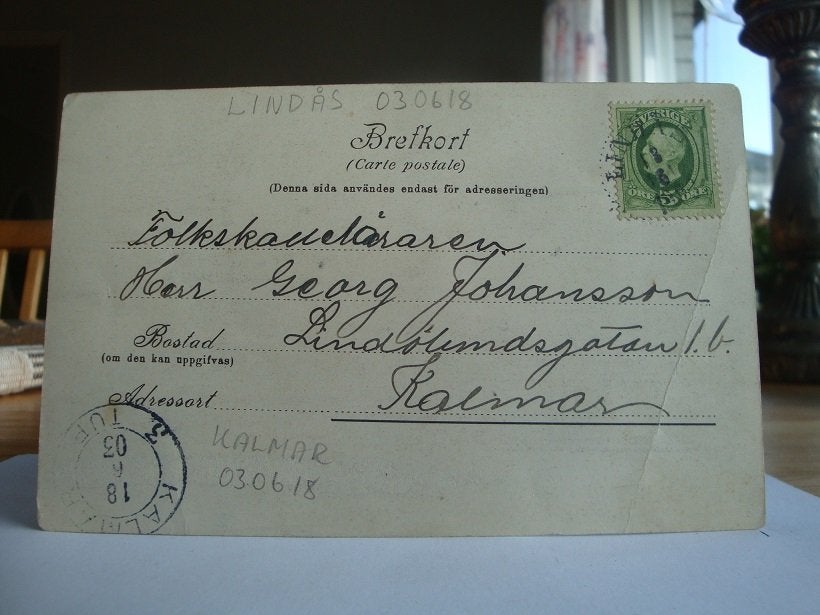 LINDÅS. 030618
Brefkort
(Carte postale)
(Denna sida användes endast för adresseringen)
SVERIGE
Herr Georg Johansson
Bostad
(om den kan uppgifvas)
Adressort
Kalmar
KALMAR
030618
KALMAR
TUR
3
18
6
03